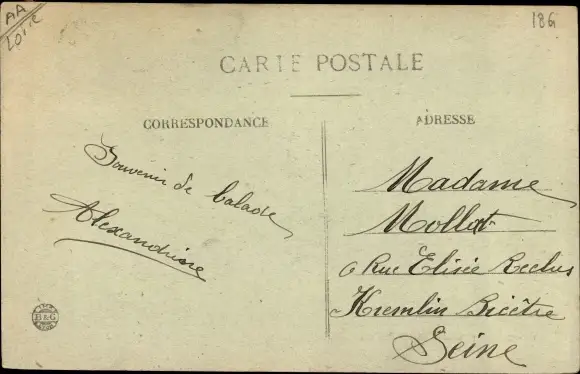 AA
LOIRE
186
CARTE POSTALE
CORRESPONDANCE
ADRESSE
Souvenir de balade
Alexandrine
Madame
Mollat
6 Rue Elisée Reclus
Kremlin Bicêtre
Seine
B&G